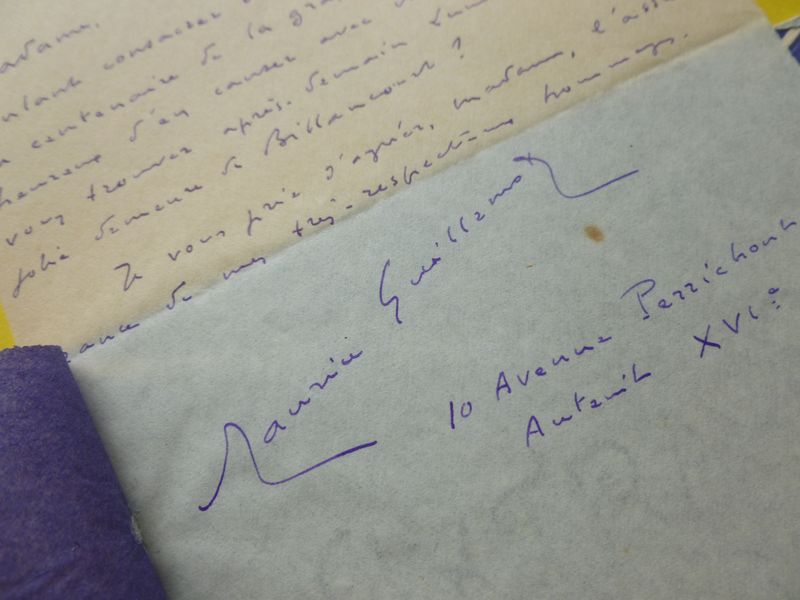 adame,
consacrer
centenaire de la
heureux d'en causer avec
vous trouver après-demain
jolie demeure de Billancourt ?
Je vous prie d'agréer, madame, l'assu
rance de mes très-respectueux hommages.
Maurice Guillemot
10 Avenue Perrichont
Auteuil XVIe